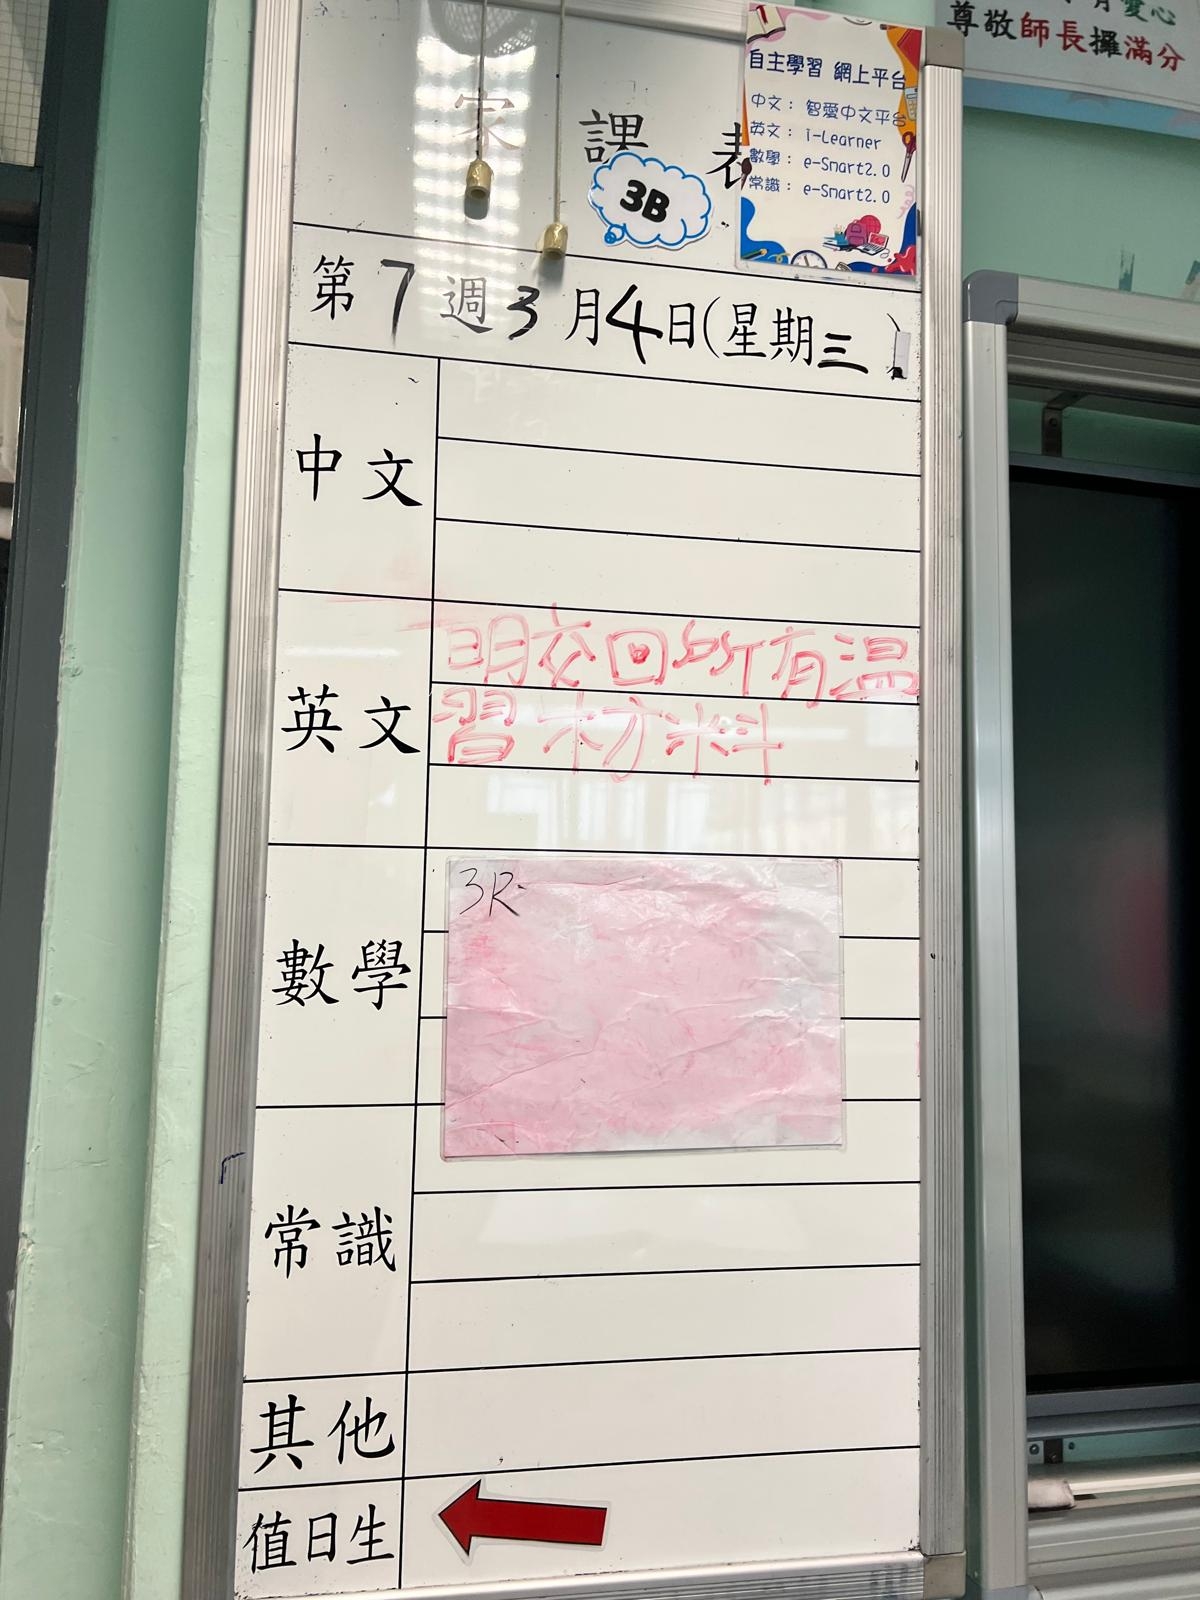 愛心
尊敬師長攞滿分
自主學習 網上平台
中文： 智愛中文平台
英文： i-Learner
數學： e-Smart2.0
常識： e-Smart2.0
家課表
3B
第7週3月4日(星期三)
中文
英文
明交回所有温
習材料
數學
3R
常識
其他
值日生